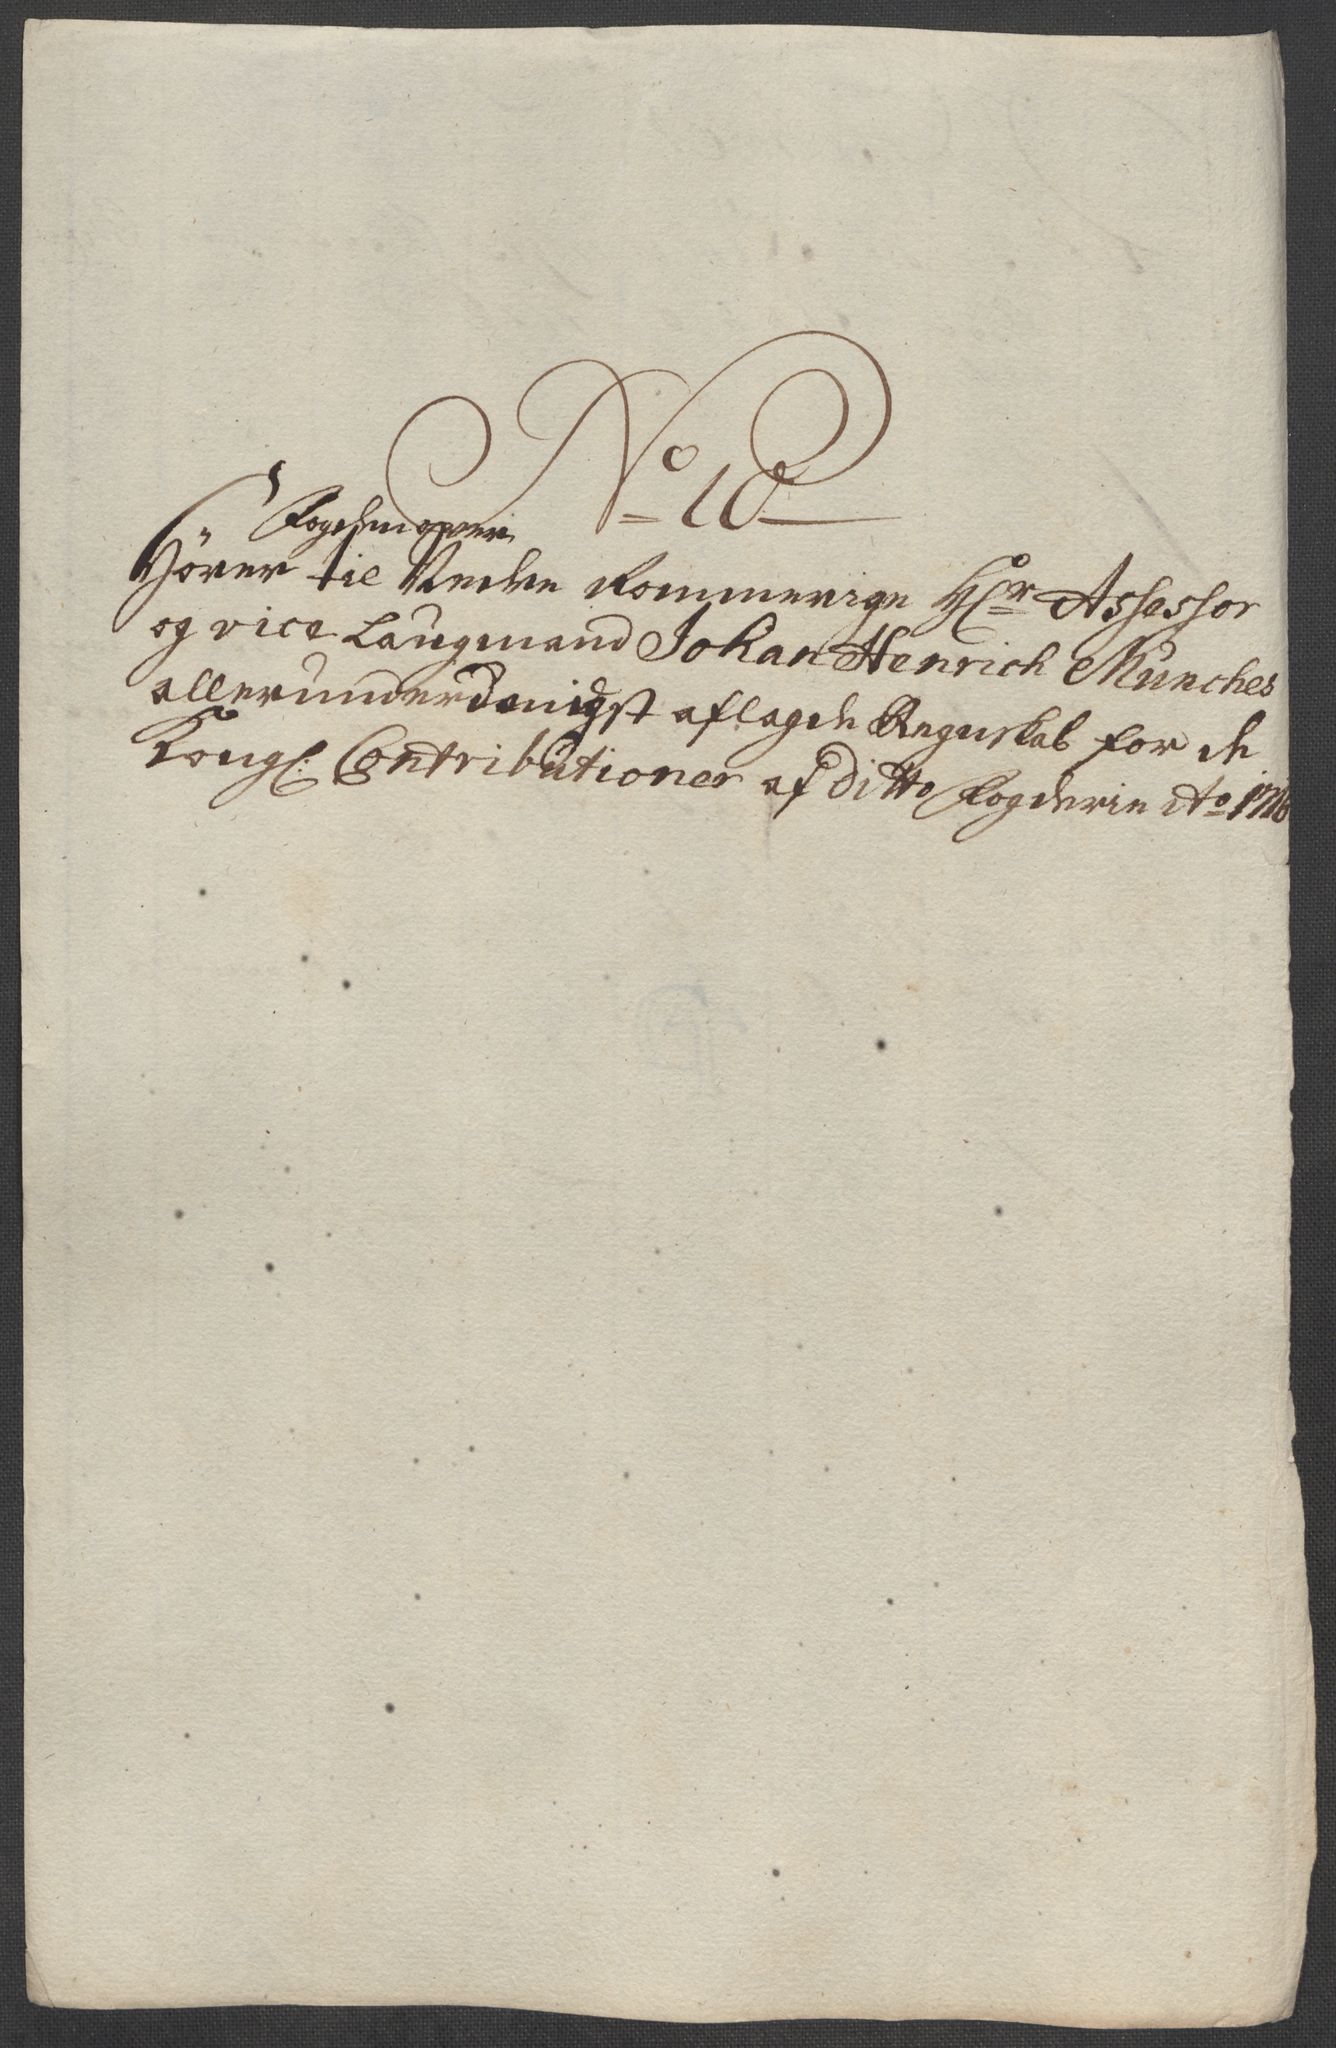 No 10
Hörer til Nedre Rommerige Hr Assessor
og vice Laugmand Johan Henrich Münches
allerunderdanigst aflagde Regnskab for de
Kongl: Contributioner af ditto Fogderie Ao 1716